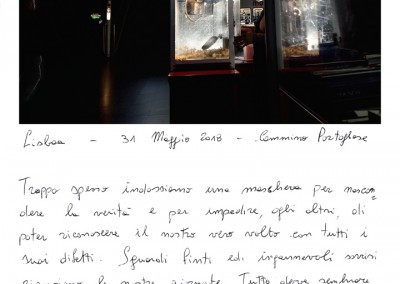 Lisbona - 31 Maggio 2018 - Cammino Portoghese
Troppo spesso indossiamo una maschera per nascon=
dere la verità e per impedire, agli altri, di
poter riconoscere il nostro vero volto con tutti i
suoi difetti. Sguardi finti ed ingannevoli sorrisi
le nostre giornate. Tutto deve sembrare